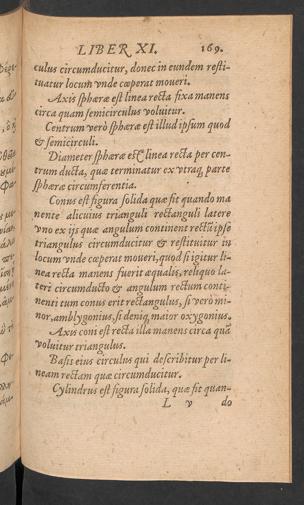 LIBER XI. 169.
culus circumducitur, donec in eundem resti-
tuatur locum vnde cœperat moueri.
Axis sphæræ est linea recta fixa manens
circa quam semicirculus voluitur.
Centrum verò sphæræ est illud ipsum quod
& semicirculi.
Diameter sphæræ est linea recta per cen-
trum ducta, quæ terminatur ex vtraq; parte
sphæræ circumferentia.
Conus est figura solida quæ fit quando ma
nente alicuius trianguli rectanguli latere
vno ex ijs quæ angulum continent rectũ ipse
triangulus circumducitur & restituitur in
locum vnde cœperat moueri, quod si igitur li-
nea recta manens fuerit æqualis, reliquo la-
teri circumducto & angulum rectum conti-
nenti tum conus erit rectangulus, si verò mi-
nor, amblygonius, si deniq; maior oxygonius.
Axis coni est recta illa manens circa quã
voluitur triangulus.
Basis eius circulus qui describitur per li-
neam rectam quæ circumducitur.
Cylindrus est figura solida, quæ fit quan-
L v do